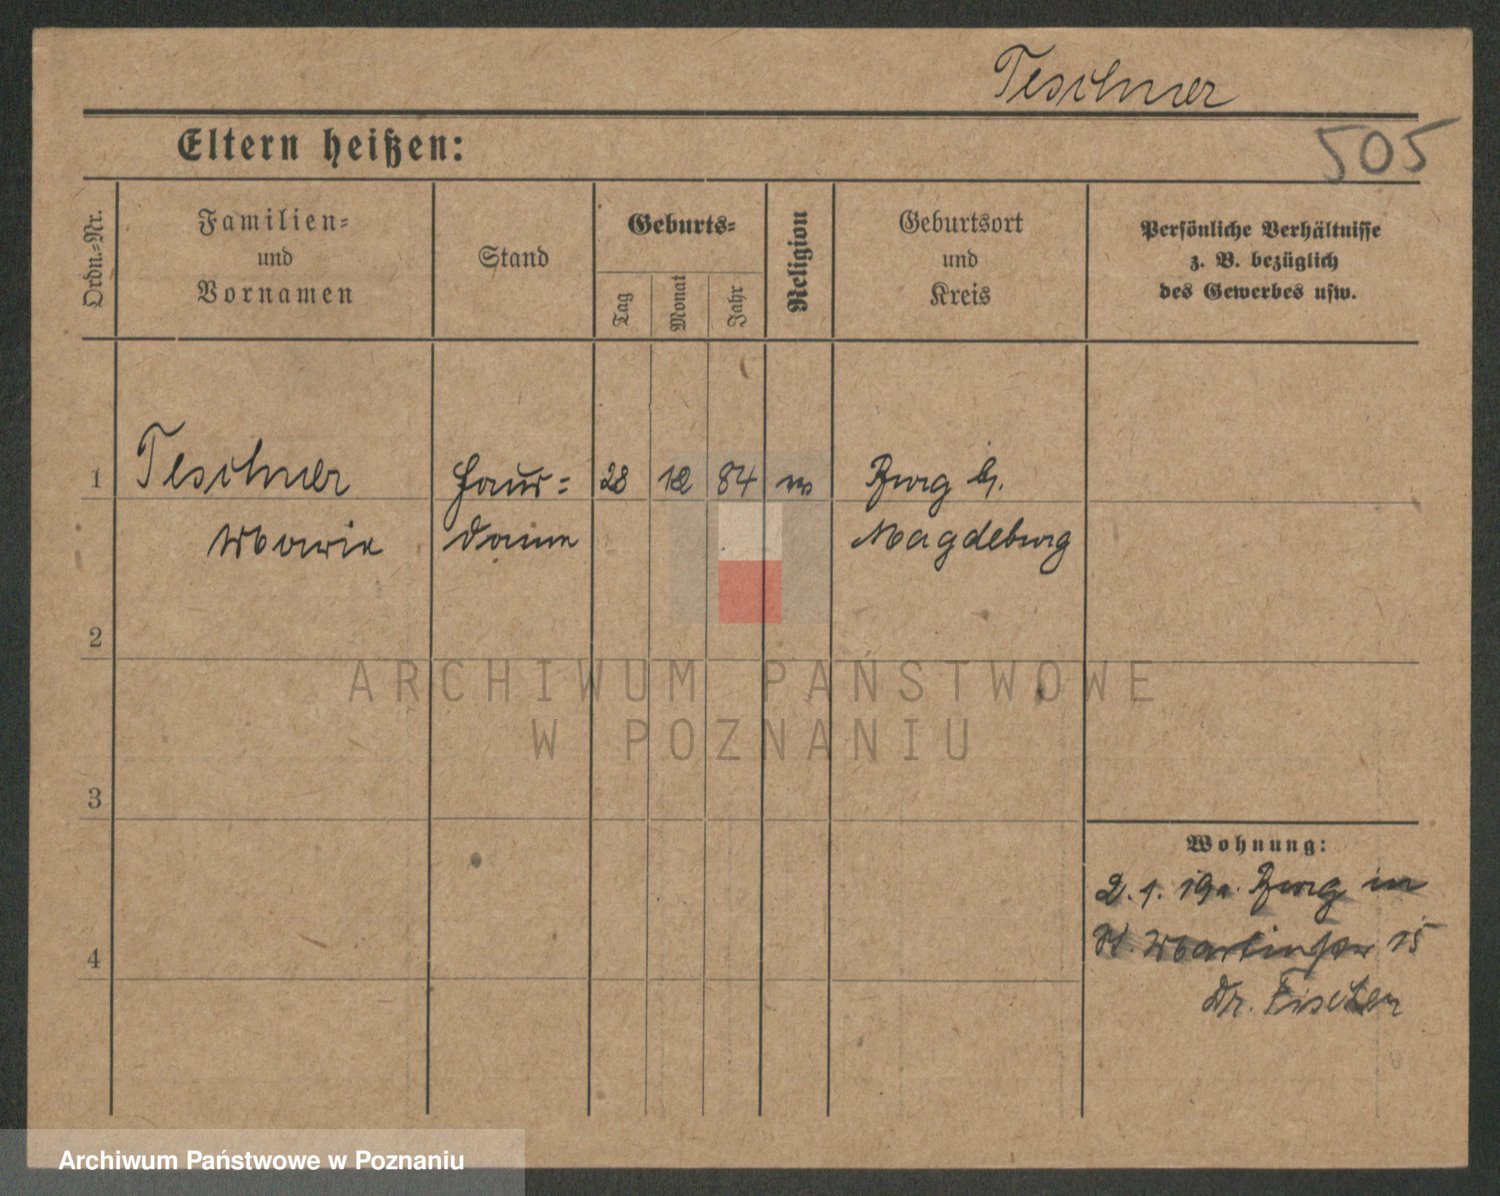 Teschner
Eltern heißen:
505
Ordn.-Nr.
Familien-
und
Vornamen
Stand
Geburts-
Tag
Monat
Jahr
Religion
Geburtsort
und
Kreis
Persönliche Verhältnisse
z. B. bezüglich
des Gewerbes usw.
1 Teschner Haus- 28 12 84 Burg b.
Marie dame Magdeburg
2
ARCHIWUM PAŃSTWOWE
W POZNANIU
3
Wohnung:
2. 1. Burg in
Martinstr 15
4
Dr. Fischer
Archiwum Państwowe w Poznaniu